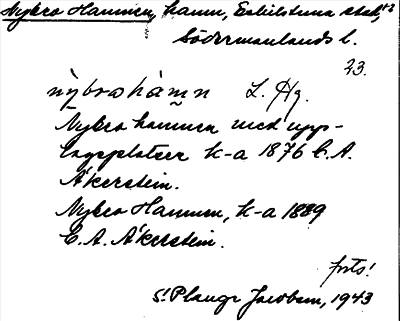 Nybro Hamnen, hamn, Eskilstuna stad,
Södermanlands l.
23.
nỳbroshàmn L. Hg.
Nybro hamnen med upp-
lagsplatser k-a 1876 C. A.
Åkerstein.
Nybro Hamnen, k-a 1889
C. A. Åkerstein.
forts!
S. Plauge Jacobsen, 1943